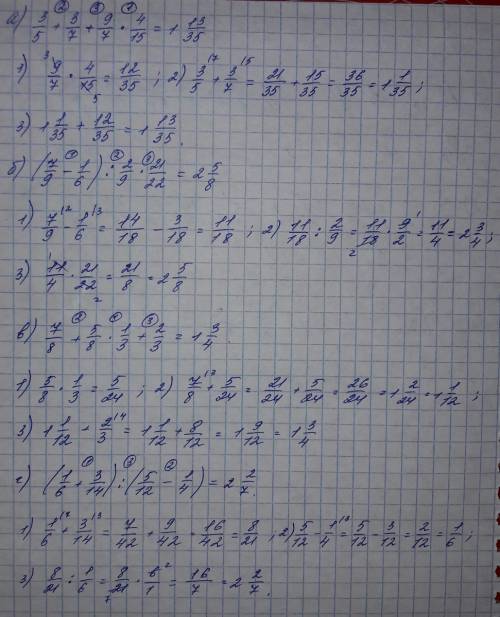 а) 3/5 + 3/7 + 9/7 · 4/15 = 1 13/35
1) 9/7 · 4/15 = 12/35 ; 2) 3/5 + 3/7 = 21/35 + 15/35 = 36/35 = 1 1/35 ;
3) 1 1/35 + 12/35 = 1 13/35 .
б) (7/9 - 1/6) : 2/9 · 21/22 = 2 5/8
1) 7/9 - 1/6 = 14/18 - 3/18 = 11/18 ; 2) 11/18 : 2/9 = 11/18 · 9/2 = 11/4 = 2 3/4 ;
3) 11/4 · 21/22 = 21/8 = 2 5/8
в) 7/8 + 5/8 · 1/3 + 2/3 = 1 3/4 .
1) 5/8 · 1/3 = 5/24 ; 2) 7/8 + 5/24 = 21/24 + 5/24 = 26/24 = 1 2/24 = 1 1/12 ;
3) 1 1/12 + 2/3 = 1 1/12 + 8/12 = 1 9/12 = 1 3/4
г) (1/6 + 3/14) : (5/12 - 1/4) = 2 2/7 .
1) 1/6 + 3/14 = 7/42 + 9/42 = 16/42 = 8/21 ; 2) 5/12 - 1/4 = 5/12 - 3/12 = 2/12 = 1/6 ;
3) 8/21 : 1/6 = 8/21 · 6/1 = 16/7 = 2 2/7 .